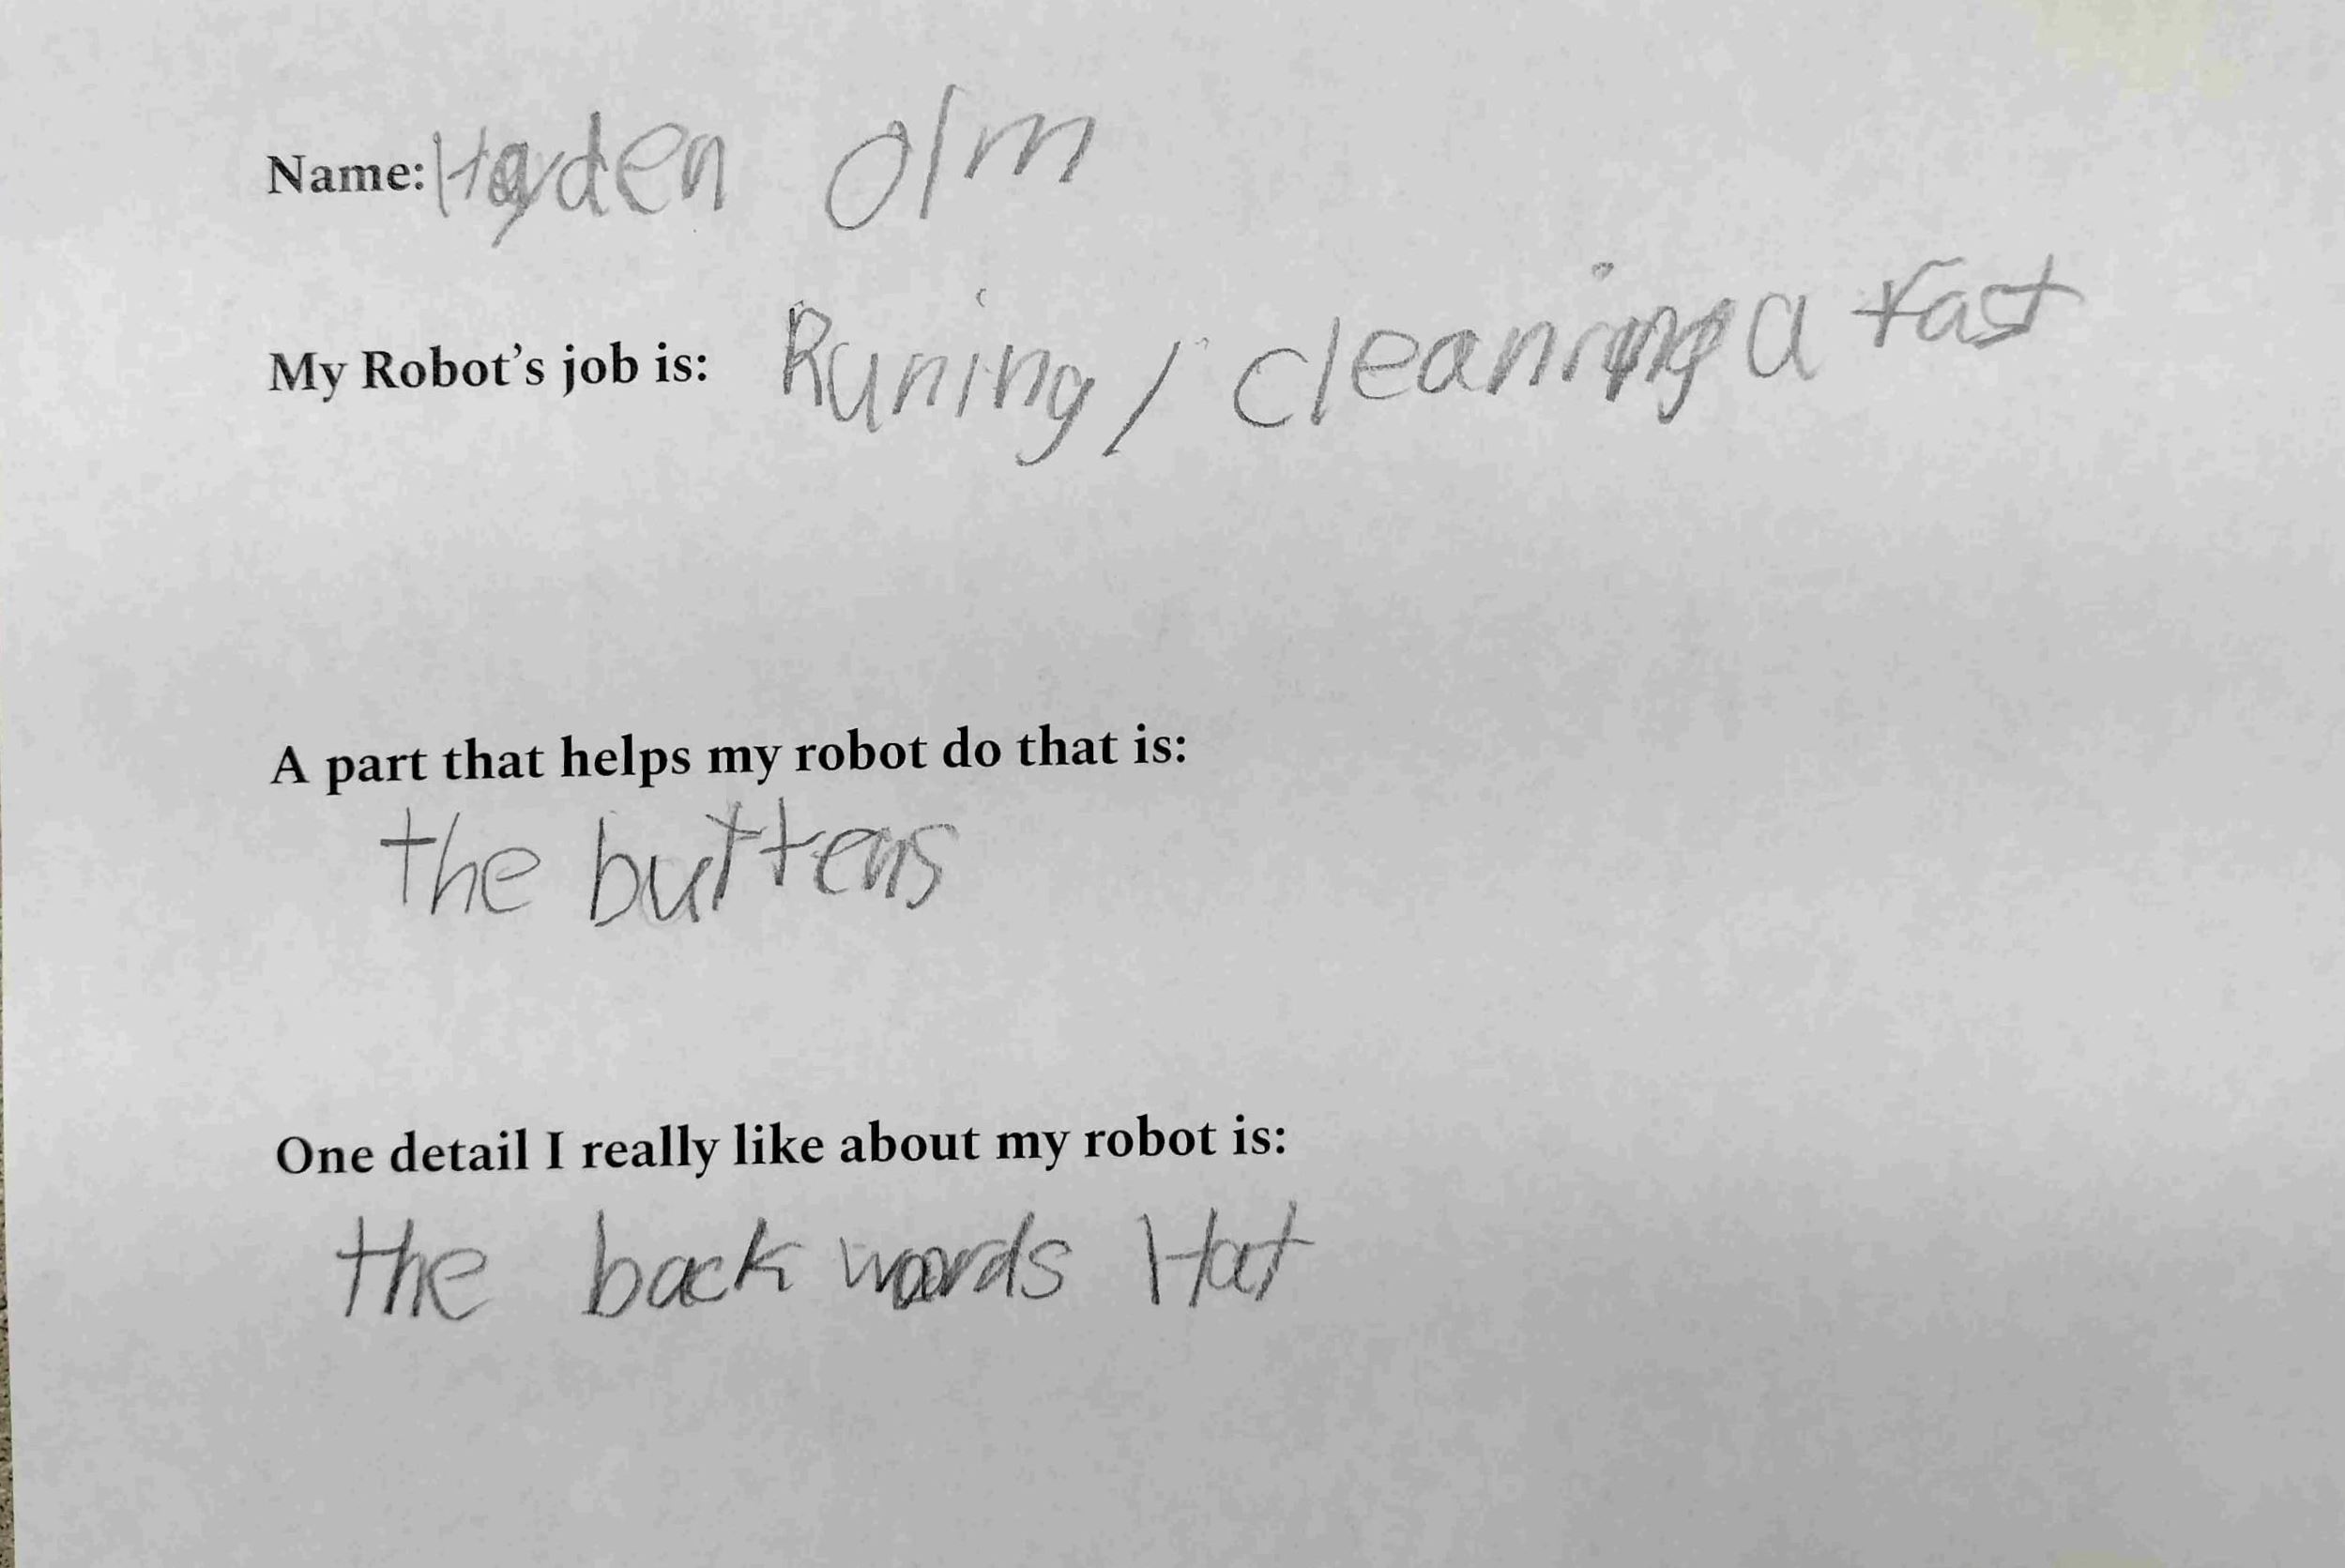 Name: Hayden Olm
My Robot's job is: Runing / cleaning a fast
A part that helps my robot do that is:
the buttens
One detail I really like about my robot is:
the back words Hat